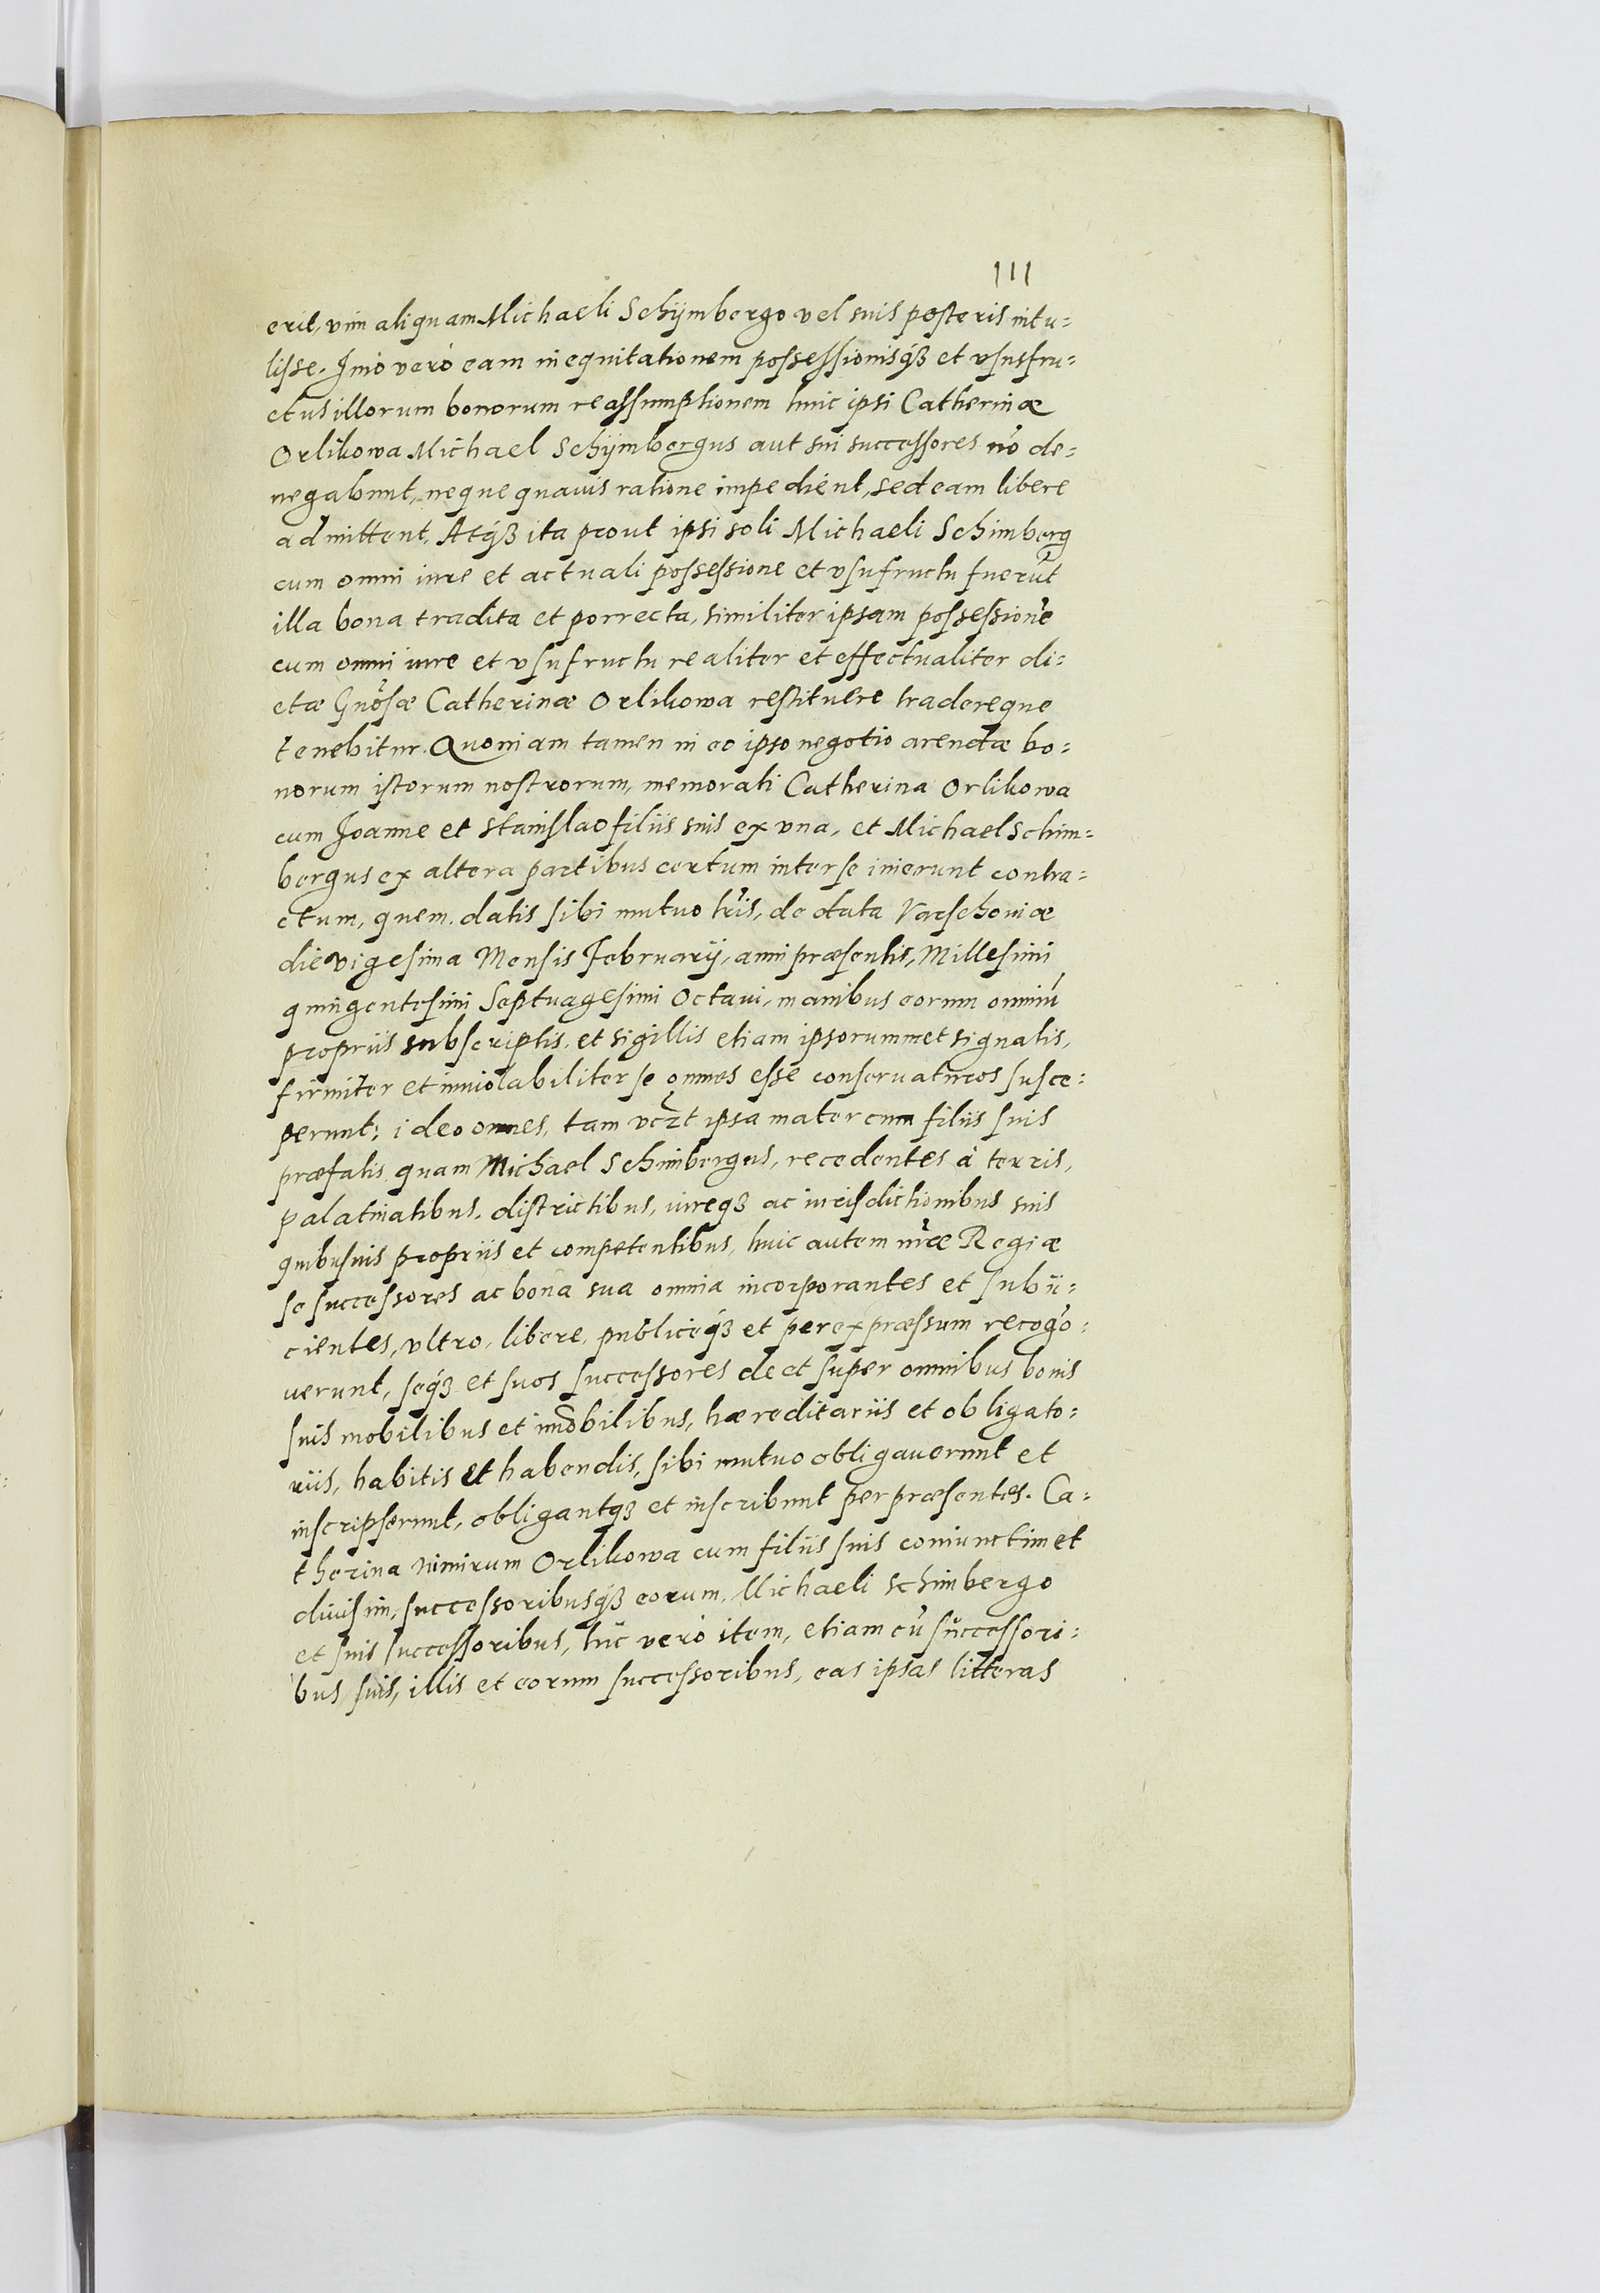 111
erit, vim aliquam Michaeli Schÿmbergo vel suis posteris intu=
lisse. Imò verò eam inequitationem possessionisq́ꝫ et vsusfru=
ctus illorum bonorum reassumptionem huic ipsi Catherinæ
Orlikowa Michael Schÿmbergus aut sui successores nõ de=
negabunt, neque quauis ratione impedient, sed eam libere
admittent. Atq́ꝫ ita prout ipsi soli Michaeli Schimberg
cum omni iure et actuali possessione et vsufructu fuerũt
illa bona tradita et porrecta, similiter ipsam possessionẽ
cum omni iure et vsufructu realiter et effectualiter di=
ctæ Gñosæ Catherinæ Orlikowa restituere tradereque
tenebitur. Quoniam tamen in eo ipso negotio arendæ bo=
norum istorum nostrorum, memorati Catherina Orlikowa
cum Joanne et Stanislao filiis suis ex vna, et Michael Schim=
bergus ex altera partibus certum inter se inierunt contra=
ctum, quem datis sibi mutuo l̃ris, de data Varschouiæ
die vigesima Mensis Februarÿ, anni præsentis, Millesimi
quingentesimi Septuagesimi Octaui, manibus eorum omniũ
propriis subscriptis, et sigillis etiam ipsorummet signatis,
firmiter et inuiolabiliter se omnes esse conseruaturos susce=
perunt: ideo omnes, tam vcꝫt ipsa mater cum filiis suis
præfatis quam Michael Schimbergus, recedentes à terris,
palatinatibus, districtibus, iureqꝫ ac iurisdictionibus suis
quibusuis propriis et competentibus, huic autem nr̃æ Regiæ
se successores ac bona sua omnia incorporantes et subii=
cientes, vltro, libere, publiceq́ꝫ et per expræssum recogno=
uerunt, seq́ꝫ et suos successores de et super omnibus bonis
suis mobilibus et im̃obilibus, hæreditariis et obligato=
riis, habitis et habendis, sibi mutuo obligauerunt et
inscripserunt, obligantqꝫ et inscribunt per præsentes. Ca=
therina nimirum Orlikowa cum filiis suis coniunctim et
diuisim, successoribusq́ꝫ eorum, Michaeli Schimbergo
et suis successoribus, hic verò item, etiam cũ successori=
bus suis, illis et eorum successoribus, eas ipsas litteras